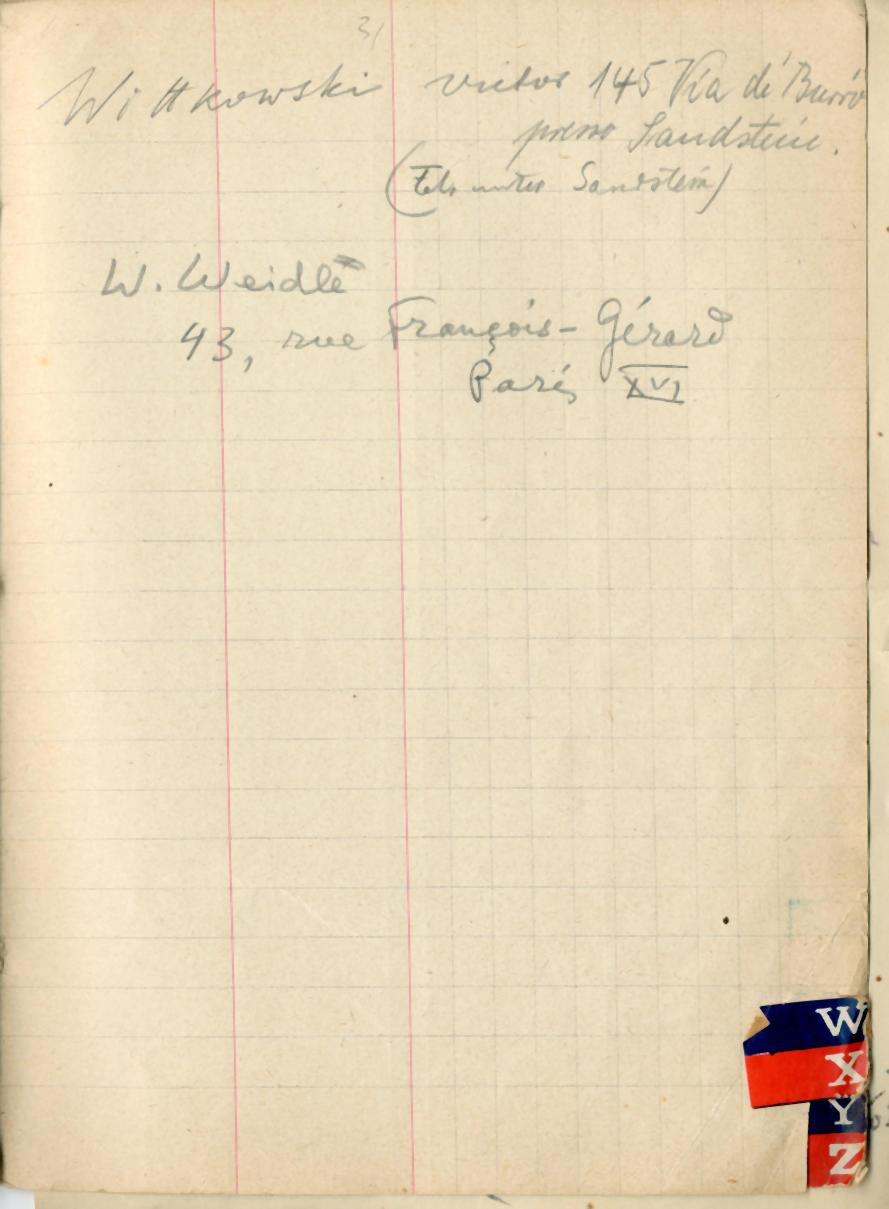 31
Wittkowski Victor 145 Via dé Burrò
presso Sandstein.
(Tel. unter Sandstein)
W. Weidlé
43, rue François-Gérard
Paris XVI
W
X
Y
Z